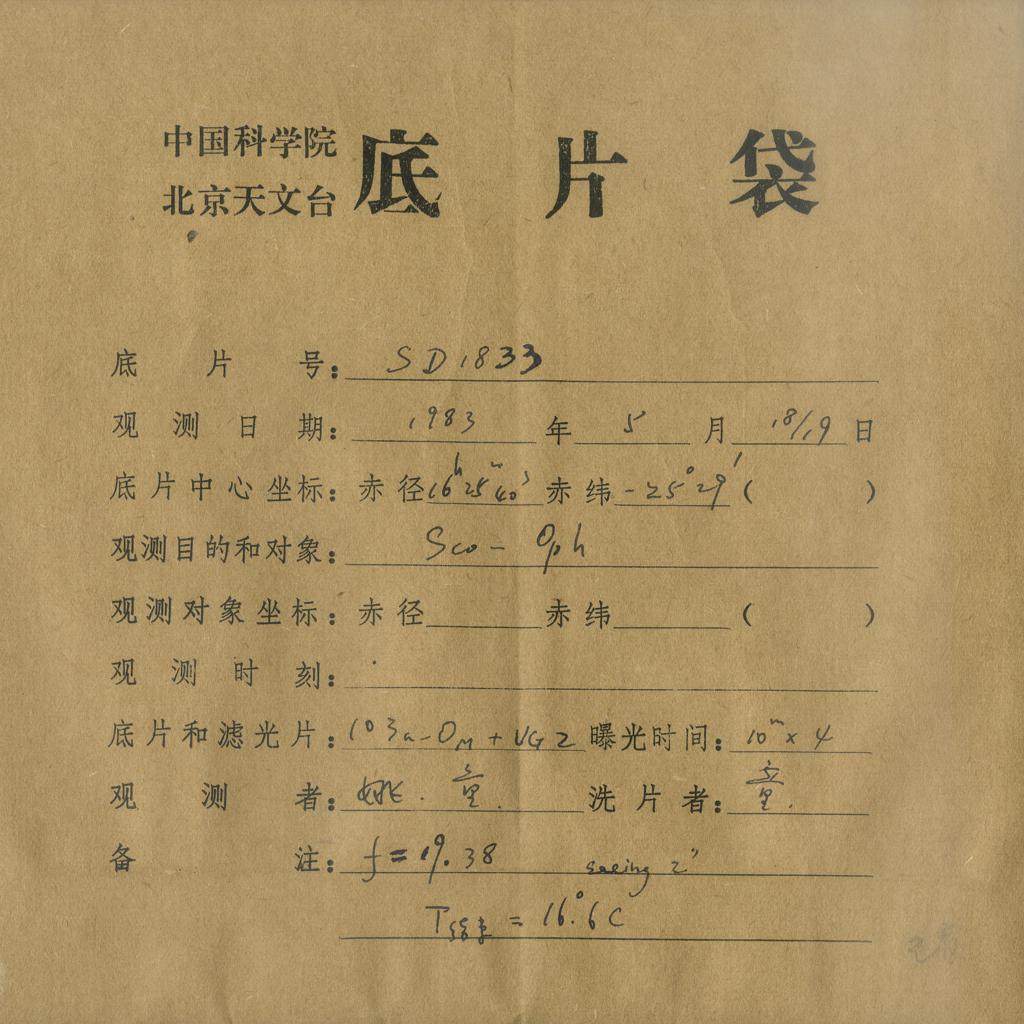 中国科学院
北京天文台
底片袋
底片号：SD1833
观测日期：1983年5月18/19日
底片中心坐标：赤径16ʰ25ᵐ40ˢ赤纬-25°29′（ ）
观测目的和对象：Sco - Oph
观测对象坐标：赤径 赤纬 （ ）
观测时刻：
底片和滤光片：103a-Oₘ + UG2 曝光时间：10ᵐ × 4
观测者：姚．童． 洗片者：童．
备注：f = 19.38 seeing 2″
T结束 = 16°.6C